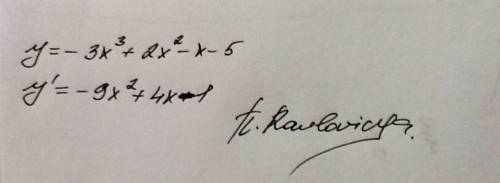 y = -3x³ + 2x² - x - 5
y' = -9x² + 4x - 1